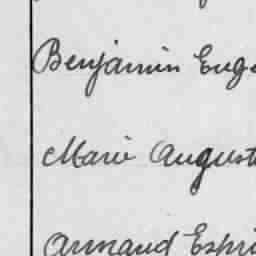 Benjamin Eug
Marie August
Armand Espri